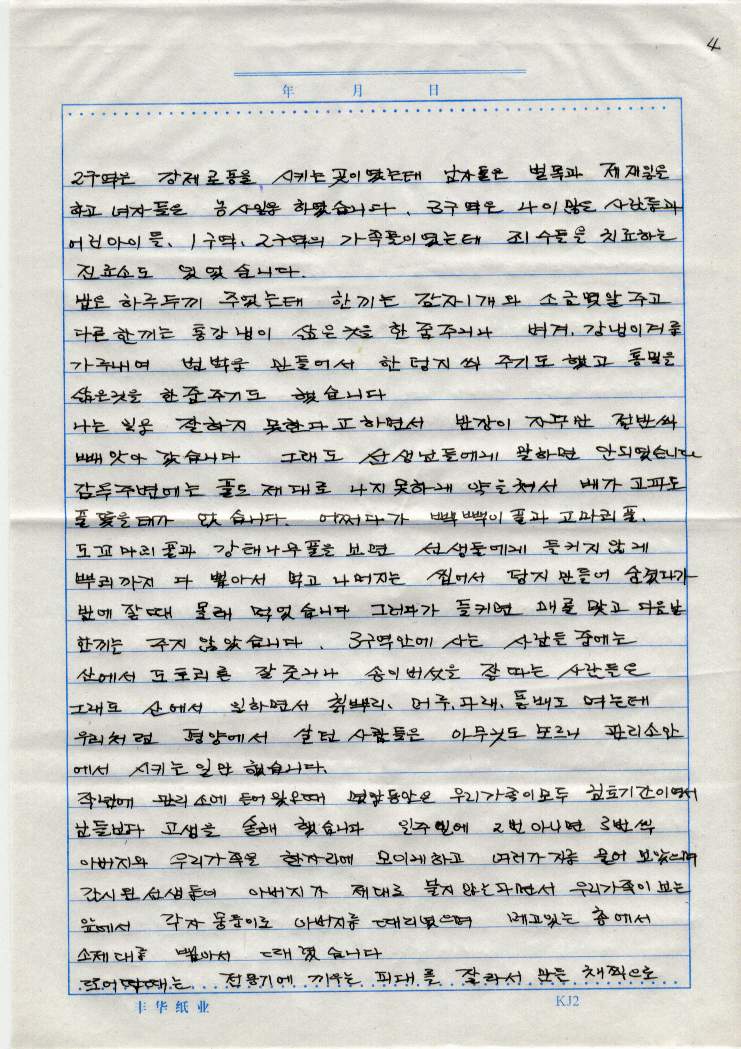 4
年 月 日
2구역은 강제로동을 시키는 곳이였는데 남자들은 벌목과 제재일을
하고 녀자들은 농사일을 하였습니다. 3구역은 나이많은 사람들과
어린아이들, 1구역, 2구역의 가족들이였는데 죄수들을 치료하는
진료소도 있었습니다.
밥은 하루두끼 주었는데 한끼는 감자1개와 소금몇알 주고
다른한끼는 통강냉이 삶은것을 한줌주거나 벼겨, 강냉이겨를
가루내여 범벅을 만들어서 한덩지씩 주기도 했고 통밀을
삶은것을 한줌주기도 했습니다
나는 일을 잘하지 못한다고하면서 반장이 자꾸만 절반씩
빼앗아 갔습니다 그래도 선생님들에게 말하면 안되였습니다
감독주변에는 풀도 제대로 나지못하게 약을쳐서 배가 고파도
풀뜯을데가 없습니다. 어쩌다가 빡빡이풀과 고마리풀,
도꼬마리풀과 강태나무풀을 보면 선생들에게 들키지않게
뿌리까지 다 뽑아서 먹고 나머지는 씹어서 덩지만들어 숨겼다가
밤에 잘때 몰래 먹었습니다 그러다가 들키면 매를 맞고 다음날
한끼는 주지 않았습니다. 3구역안에 사는 사람들중에는
산에서 도토리를 잘줏거나 송이버섯을 잘따는 사람들은
그래도 산에서 일하면서 칡뿌리, 머루, 다래, 돌배도 먹는데
우리처럼 평양에서 살던 사람들은 아무것도 모르니 관리소안
에서 시키는일만 했습니다.
작년에 관리소에 들어왔을때 몇달동안은 우리가족이모두 검토기간이여서
남들보다 고생을 숱해 했습니다 일주일에 2번아니면 3번씩
아버지와 우리가족을 한자리에 모이게하고 여러가지를 물어 보았으며
감시원선생들이 아버지가 제대로 불지않는다면서 우리가족이 보는
앞에서 각자 몽둥이로 아버지를 때리였으며 메고있는 총에서
소제대를 뽑아서 때렸습니다
또어떤때는 전동기에 끼우는 피대를 잘라서 만든 채찍으로
丰华纸业 KJ2